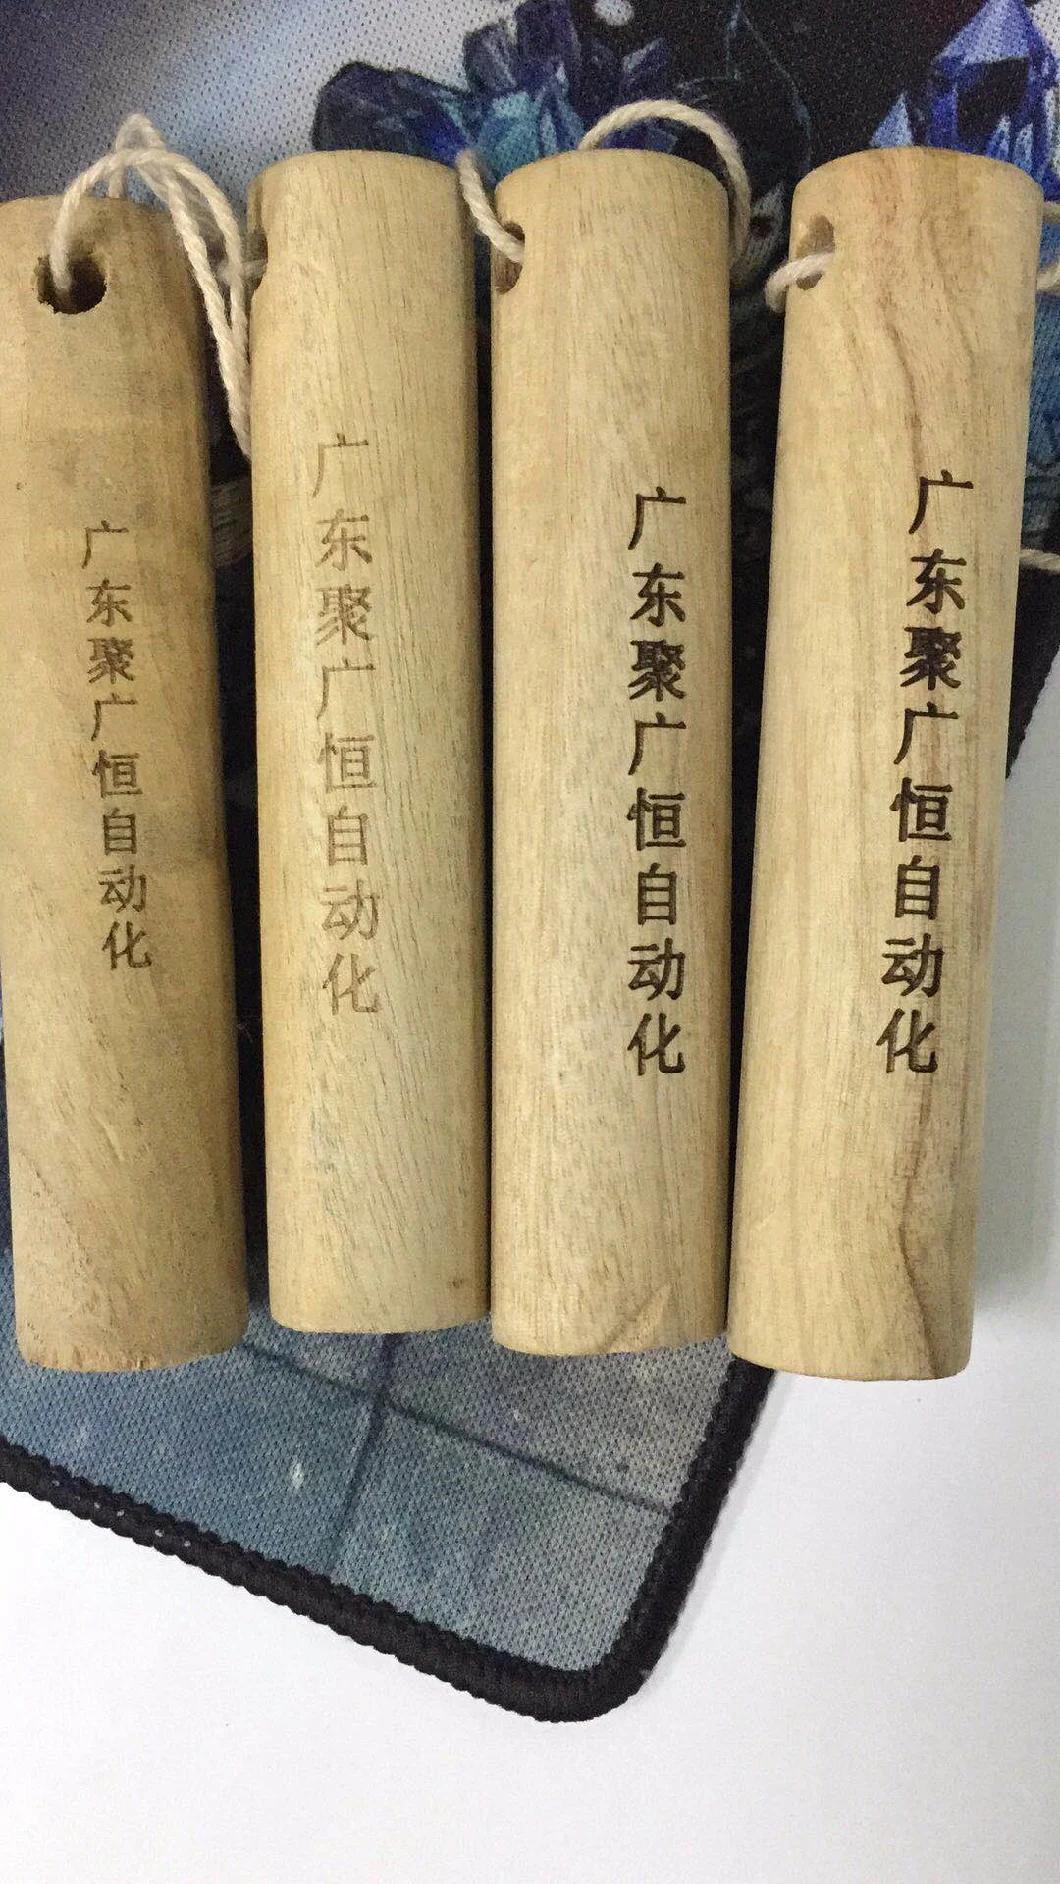 广东聚广恒自动化
广东聚广恒自动化
广东聚广恒自动化
广东聚广恒自动化